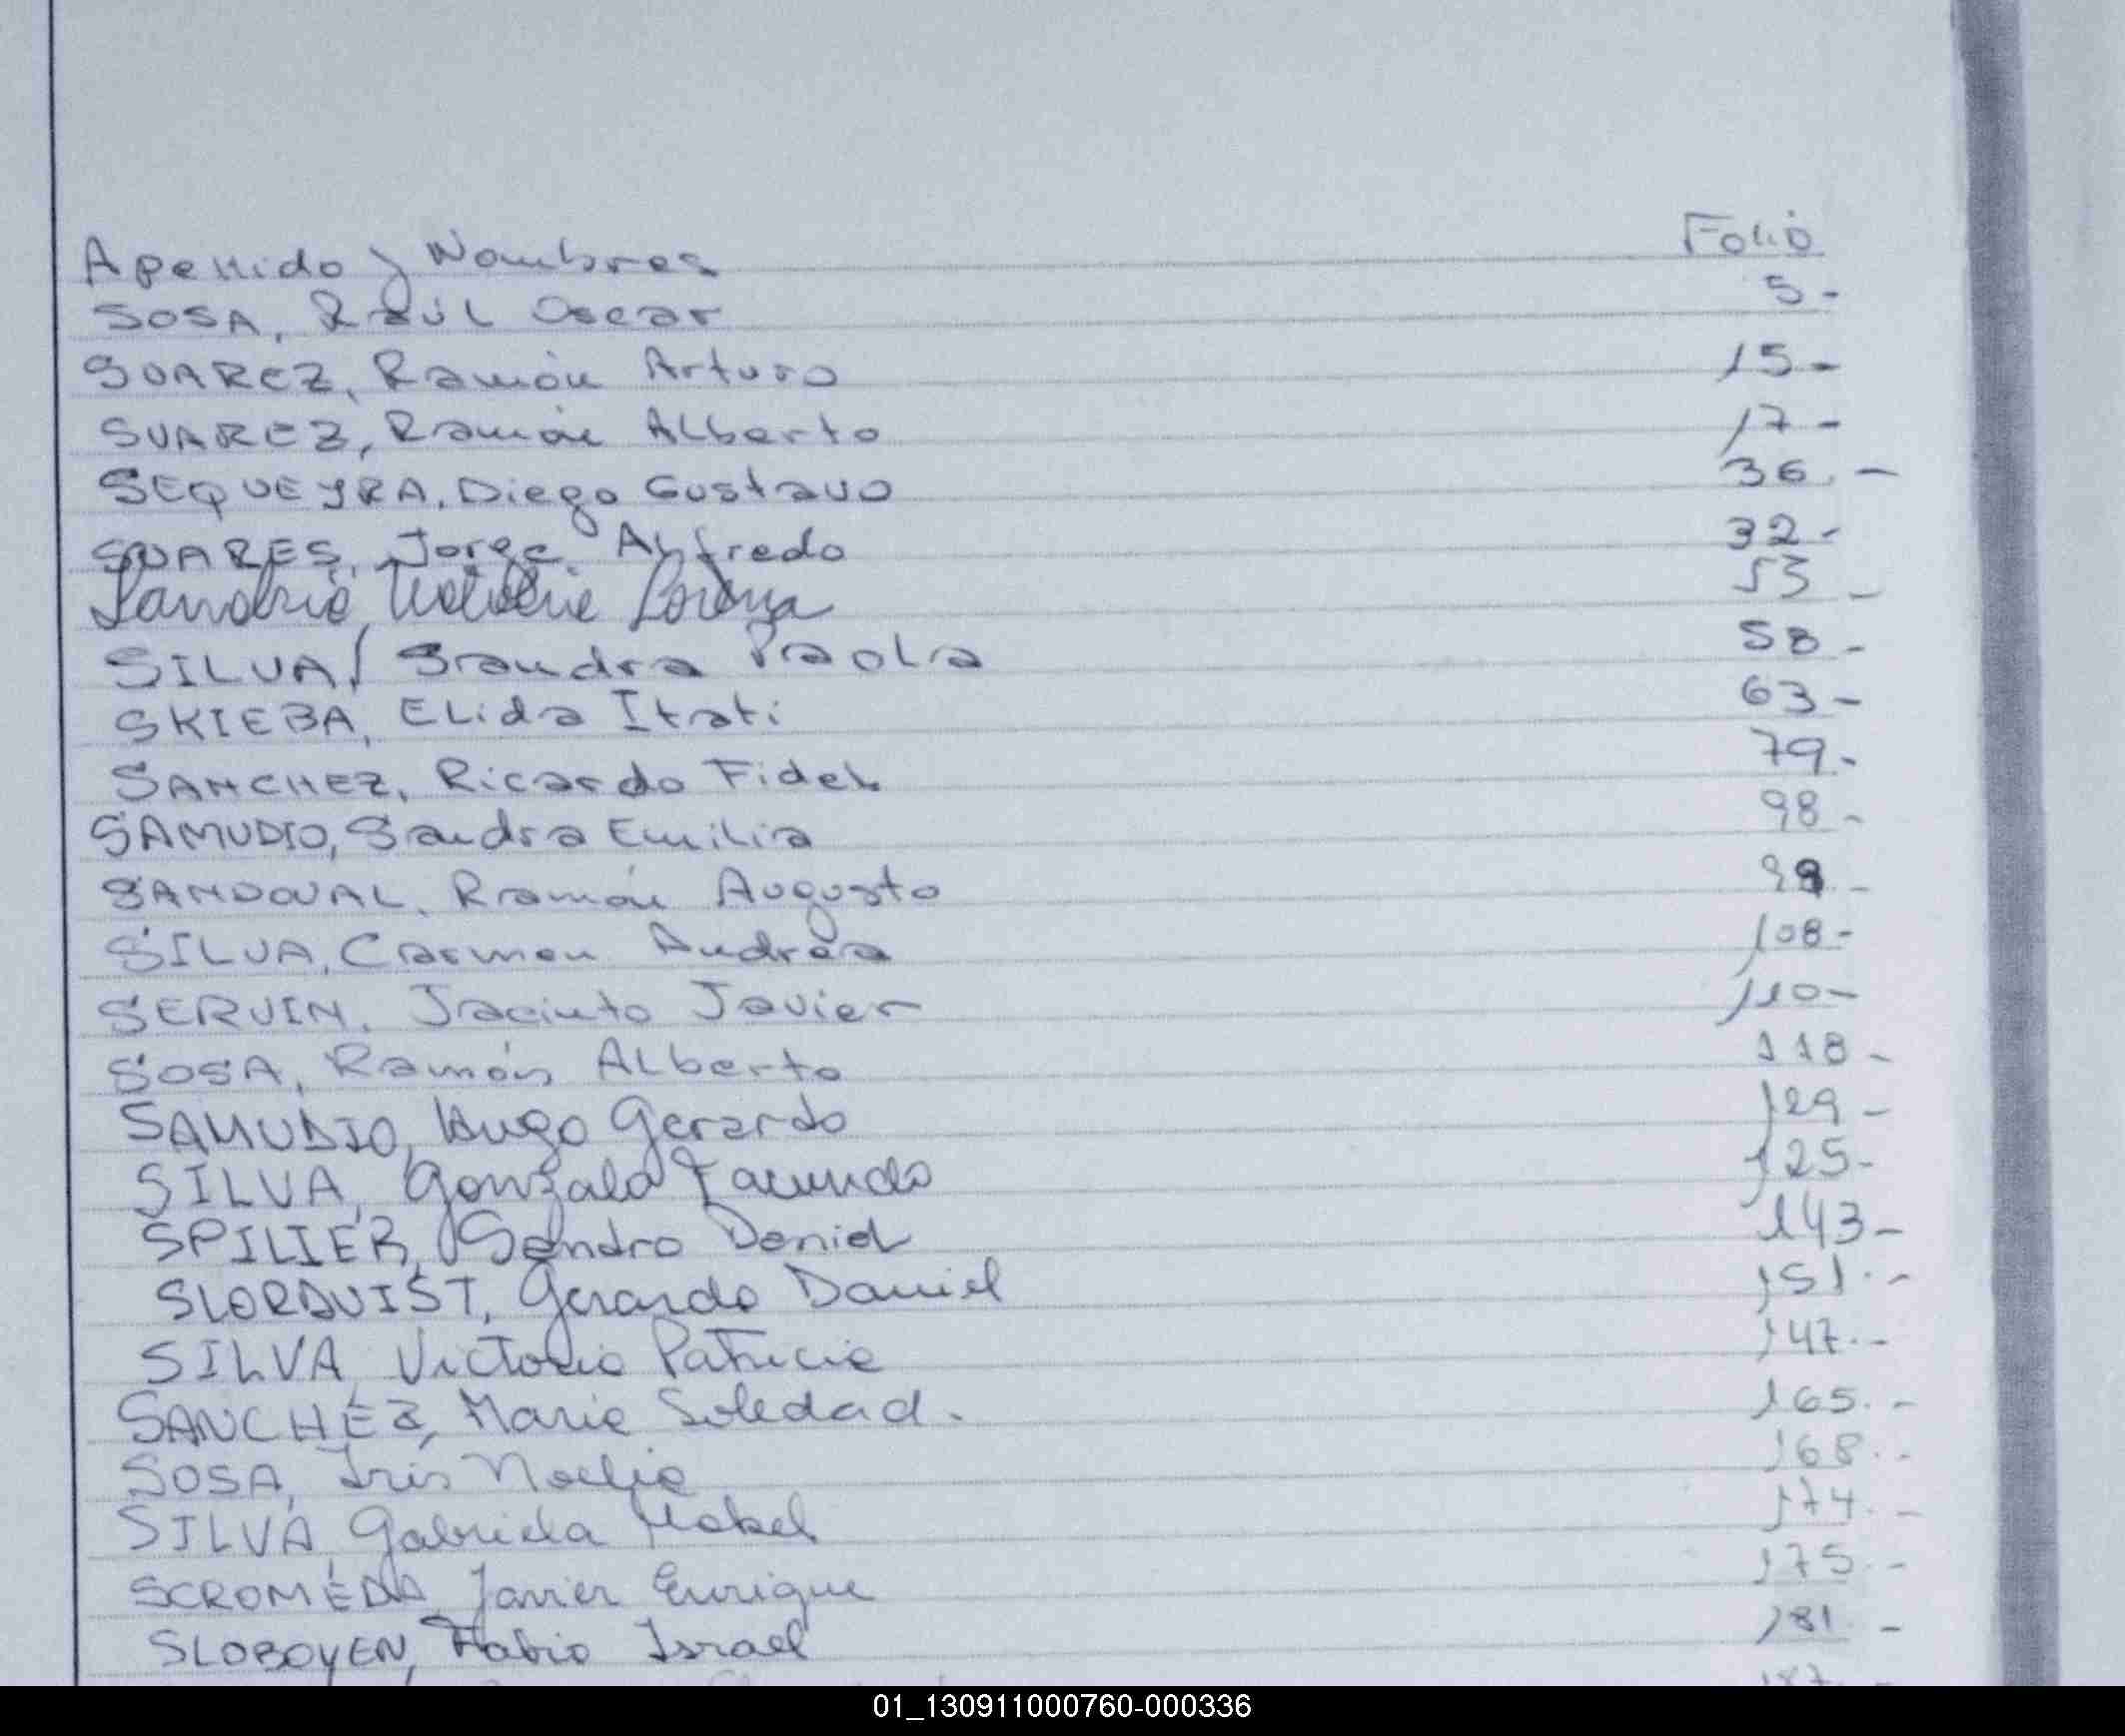 Apellido y Nombres Folio
SOSA, Raúl Oscar 5-
SUAREZ, Ramón Arturo 15-
SUAREZ, Ramón Alberto 17-
SEQUEYRA, Diego Gustavo 36.-
SUARES, Jorge Alfredo 32-
Sanabria, Lorenza 53-
SILVA, Sandra Paola 58-
SKIEBA, Elida Itati 63-
SANCHEZ, Ricardo Fidel 79-
SAMUDIO, Sandra Emilia 98-
SANDOVAL, Ramón Augusto 99-
SILVA, Carmen Andréa 108-
SERVIN, Jacinto Javier 110-
SOSA, Ramón Alberto 118-
SAMUDIO, Hugo Gerardo 129-
SILVA, Gonzalo Facundo 125-
SPILIER, Sandro Daniel 143-
SLORDUIST, Gerardo Daniel 151.-
SILVA Victoria Patricia 147.-
SANCHEZ, Maria Soledad. 165.-
SOSA, Iris Noelia 168.-
SILVA, Gabriela Mabel 174.-
SCROMEDA, Javier Enrique 175.-
SLOBOYEN, Fabio Israel 181.-
187.-
01_130911000760-000336